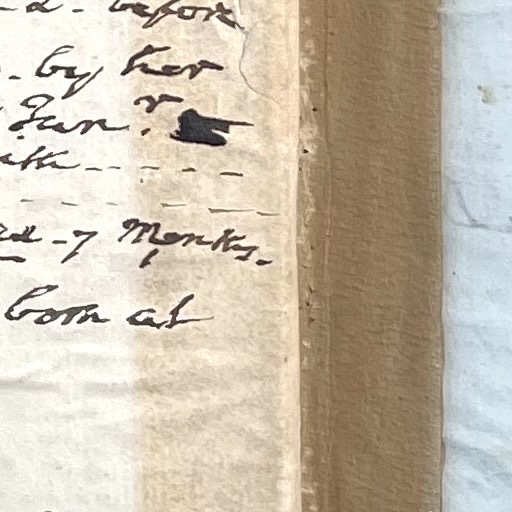 before
by her
Jan.r
- - - -
- - - - -
- 7 Months.
born at